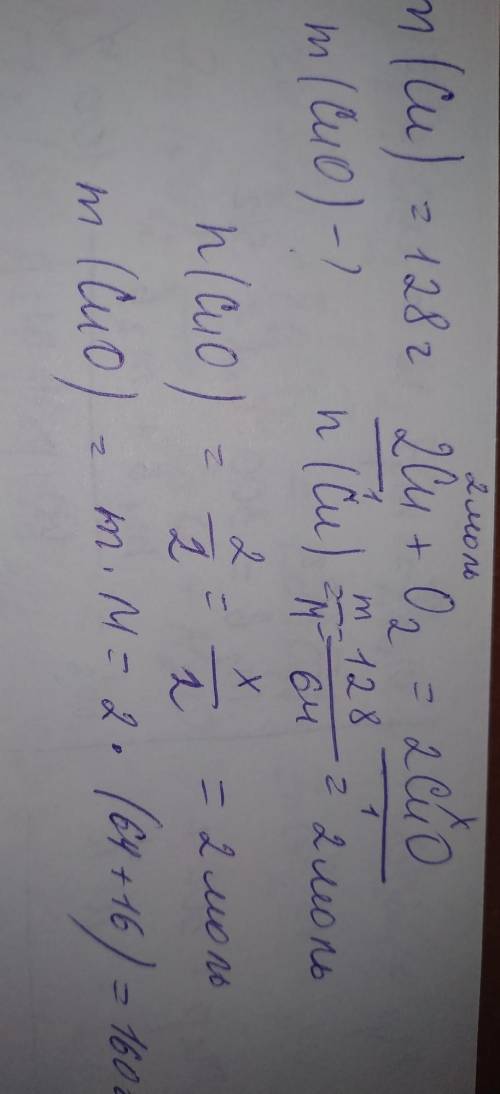 m (Cu) = 128г
m (CuO) - ?
2моль x
2Cu + O2 = 2CuO
1 1
n (Cu) = m/M = 128/64 = 2 моль
n (CuO) = 2/2 = x/2 = 2 моль
m (CuO) = m · M = 2 · (64 + 16) = 160г